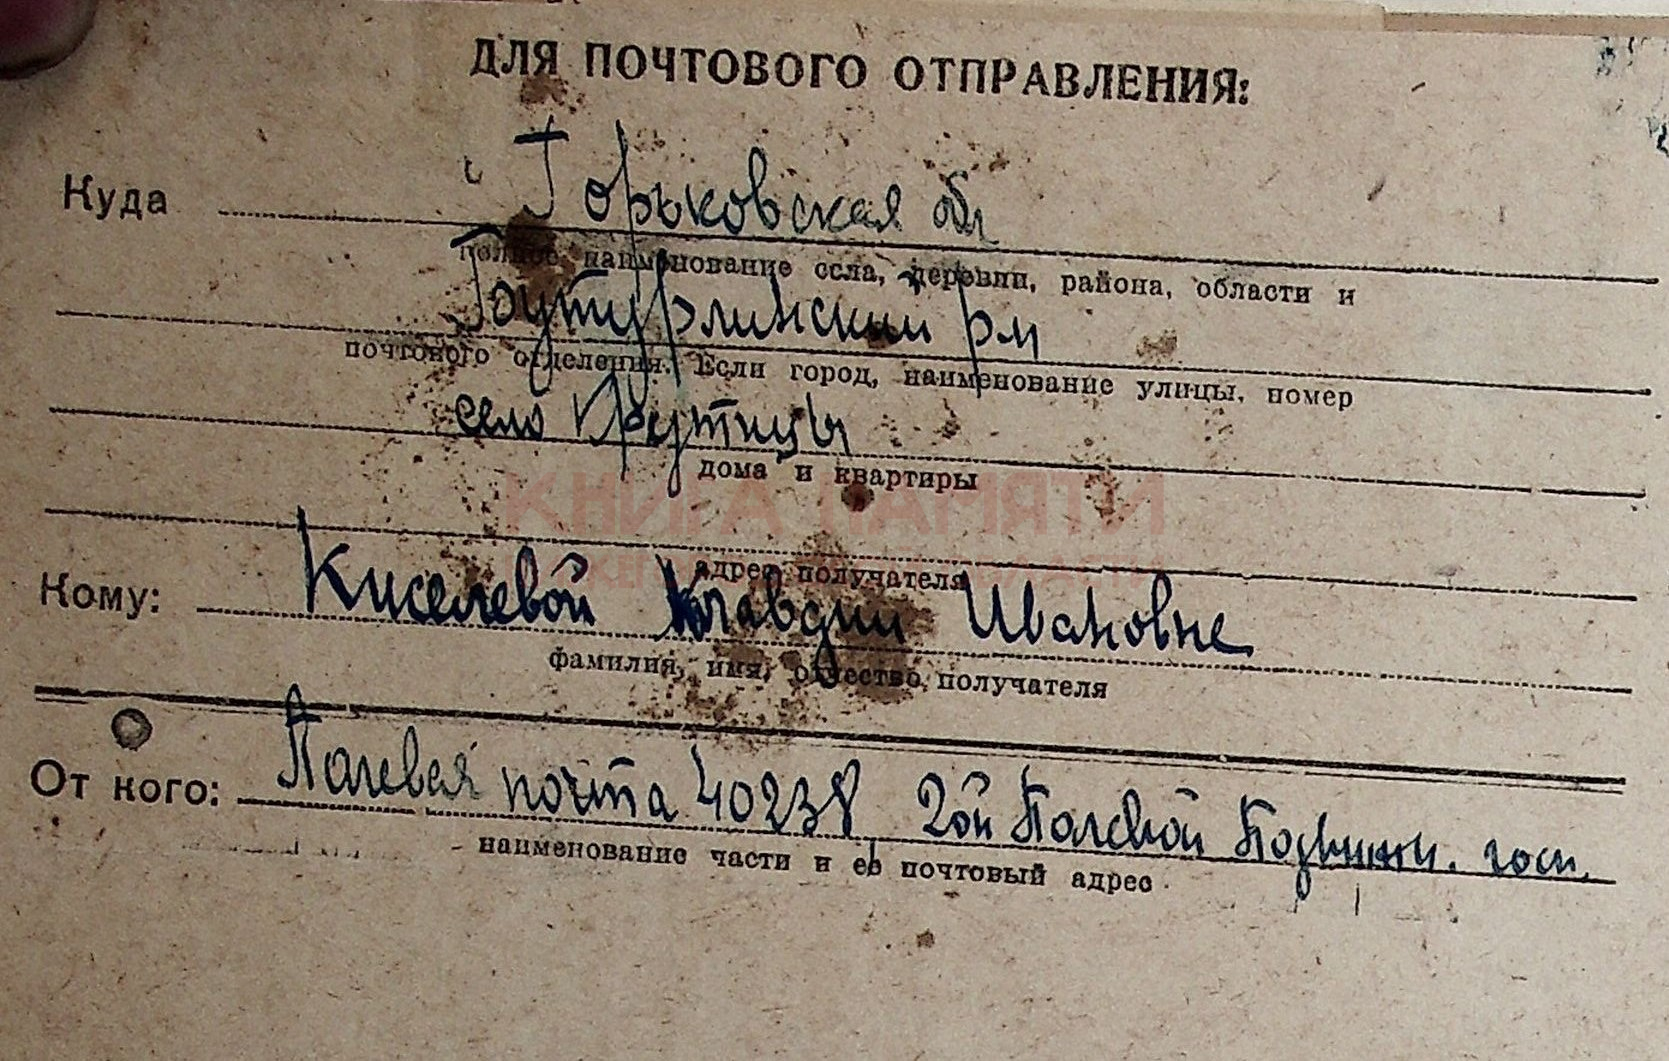 ДЛЯ ПОЧТОВОГО ОТПРАВЛЕНИЯ:
Куда Горьковская обл
полное наименование села, деревни, района, области и
Бутурлинский р-н
почтового отделения. Если город, наименование улицы, номер
село Крутицы
дома и квартиры
КНИГА ПАМЯТИ
адрес получателя
Кому: Киселевой Клавдии Ивановне
фамилия, имя, отчество, получателя
От кого: Полевая почта 40238 2ой Полевой Подвижн. госп.
наименование части и её почтовый адрес